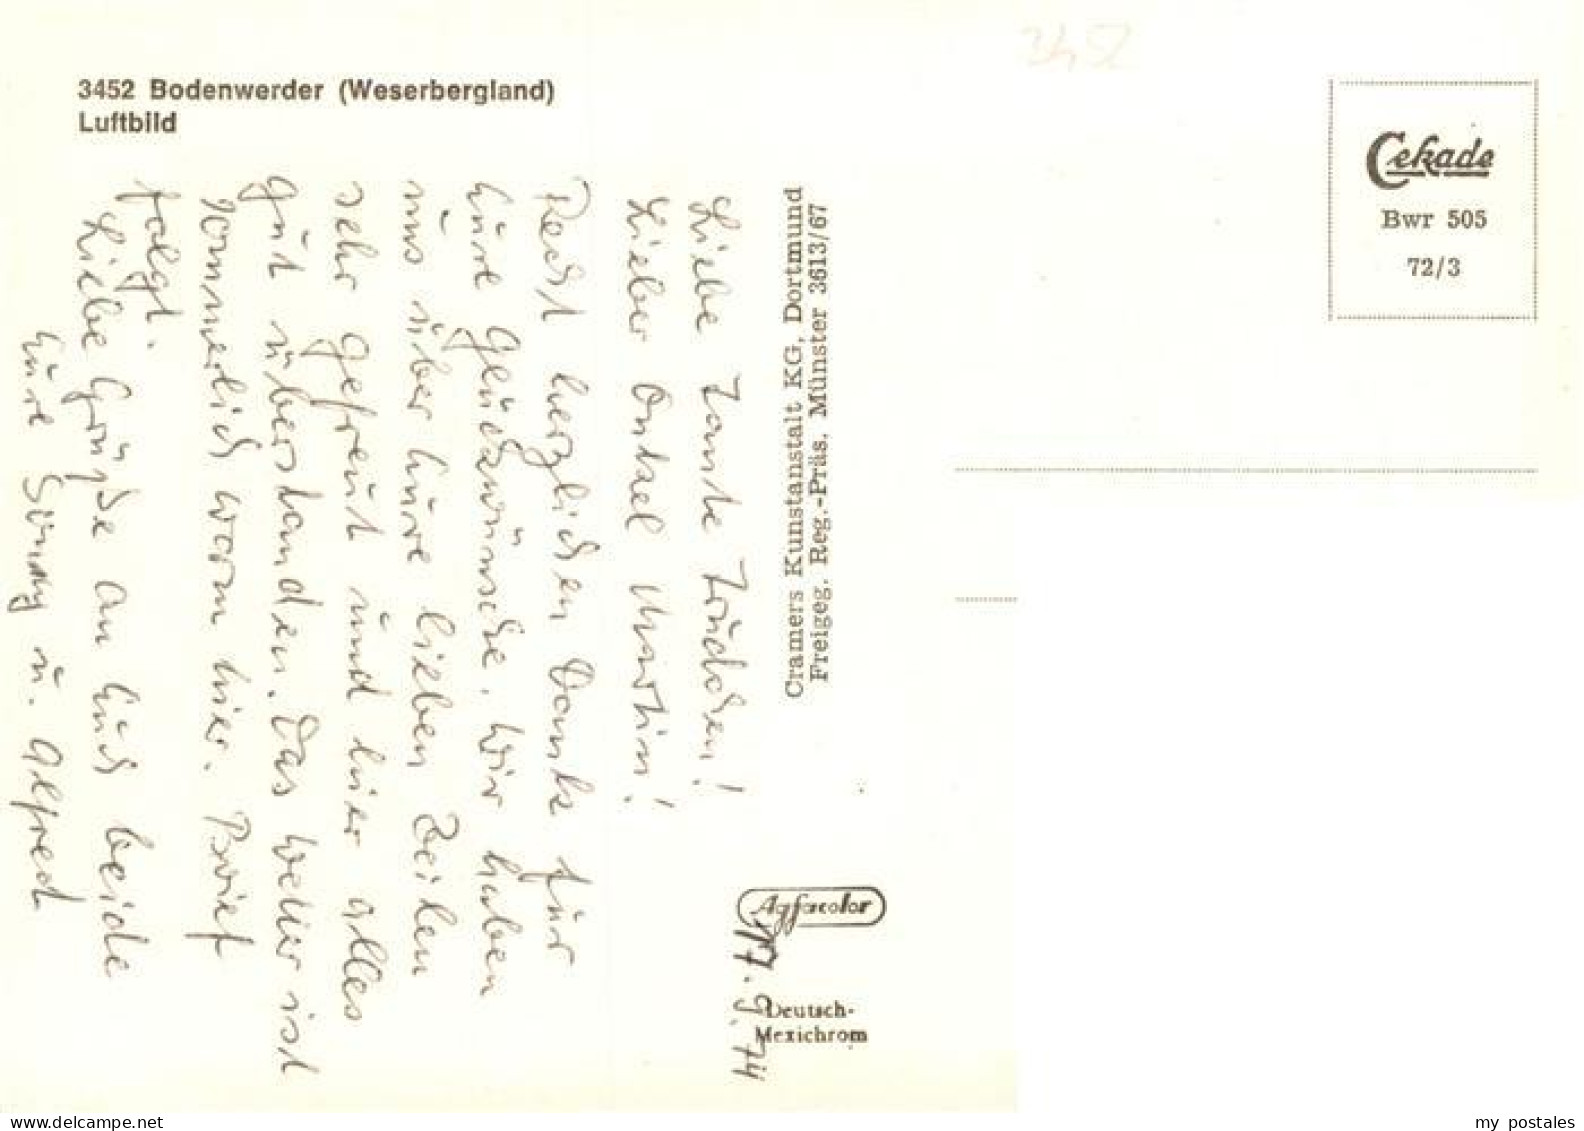 3452 Bodenwerder (Weserbergland)
Luftbild
Cekade
Bwr 505
72/3
Cramers Kunstanstalt KG, Dortmund
Freigeg. Reg.-Präs. Münster 3613/67
Agfacolor
Deutsch-
Mexichrom
17.9.74
Liebe Tante Trudchen!
Lieber Onkel Martin!
Recht herzlichen Dank für
Eure Glückwünsche. Wir haben
uns über Eure lieben Zeilen
sehr gefreut und hier alles
gut überstanden. Das Wetter ist
sommerlich warm hier. Brief
folgt.
Liebe Grüße an Euch beide
Eure u. Alfred
my postales
delcampe.net